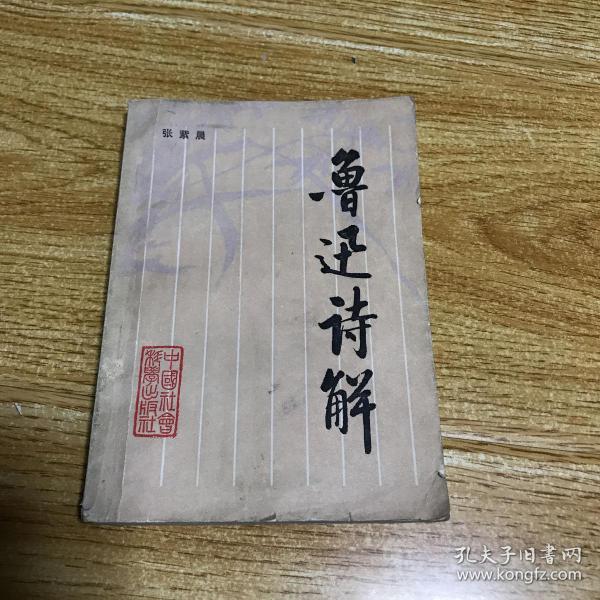 张紫晨
魯迅诗解
中國社會
科學出版社
孔夫子旧書网
www.kongfz.com